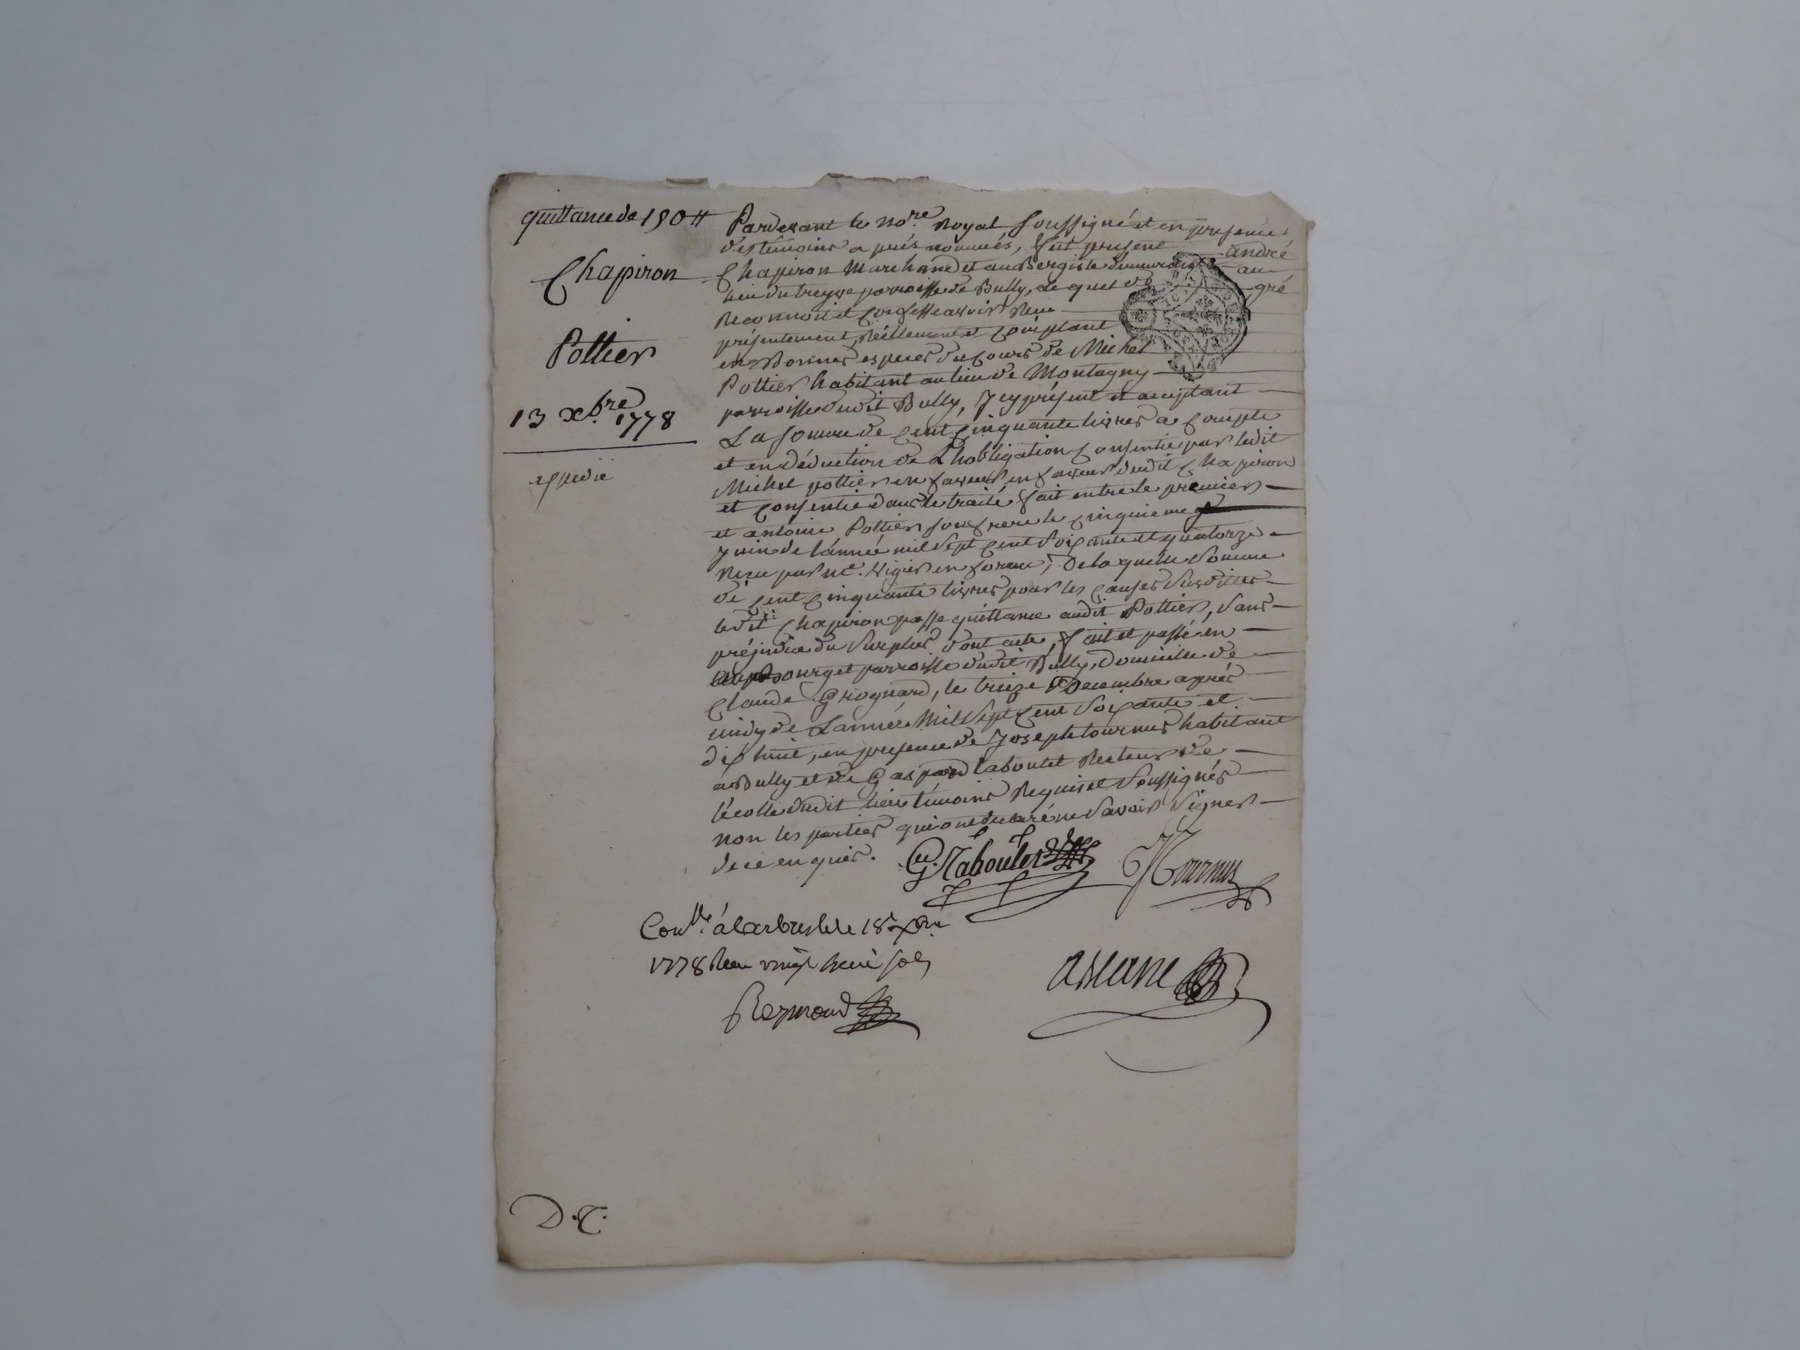 quittance de 150 ₶
Chapiron
Pottier
13 xbre 1778
expedié
Pardevant le nore Royal soussigné et en presence
des temoins a prés nommés, fut present andré
Chapiron Marchand et auBergiste demeurant au
lieu du parroisse de Bully, Le quel de gré
Reconnoit et Confesse avoir Reçu
présentement, Réellement et Comptant
en Bonnes especes du Cours de Michel
Pottier habitant au lieu de Montagny
parroisse dudit Bully, Icy présent et aceptant
La somme de Cent Cinquante livres a Compte
et en déduction de L'hobligation Consentie par ledit
Michel pottier en faveur en faveur dudit Chapiron
et Consentie dans le traité fait entre le premier
et antoine Pottier son frere le Cinquieme
Juin de l'année mil sept Cent soixante et quatorze
Reçu par Me. Vigier en forme, De laquelle somme
de Cent Cinquante livres pour les Causes susdittes
ledit Chapiron passe quittance audit Pottier, sans
préjudice du surplus, dont acte, fait et passé en
Bourg et parroisse dudit Bully, Domicille de
Claude Grognard, le treize Decembre aprés
midy de L'année Mil Sept Cent Soixante et
dix huit, en presence de Joseph tournus habitant
audit Bully et de Gaspard laboulet Recteur de
l'école dudit lieu temoins Requis et Soussignés
non les parties qui ont declaré ne savoir Signer
de ce enquis. G. Laboulet Tournus
Conllé. á Larbresle le 18e Xbre
1778 Reçu vingt huit sols
Reymond
D.C.